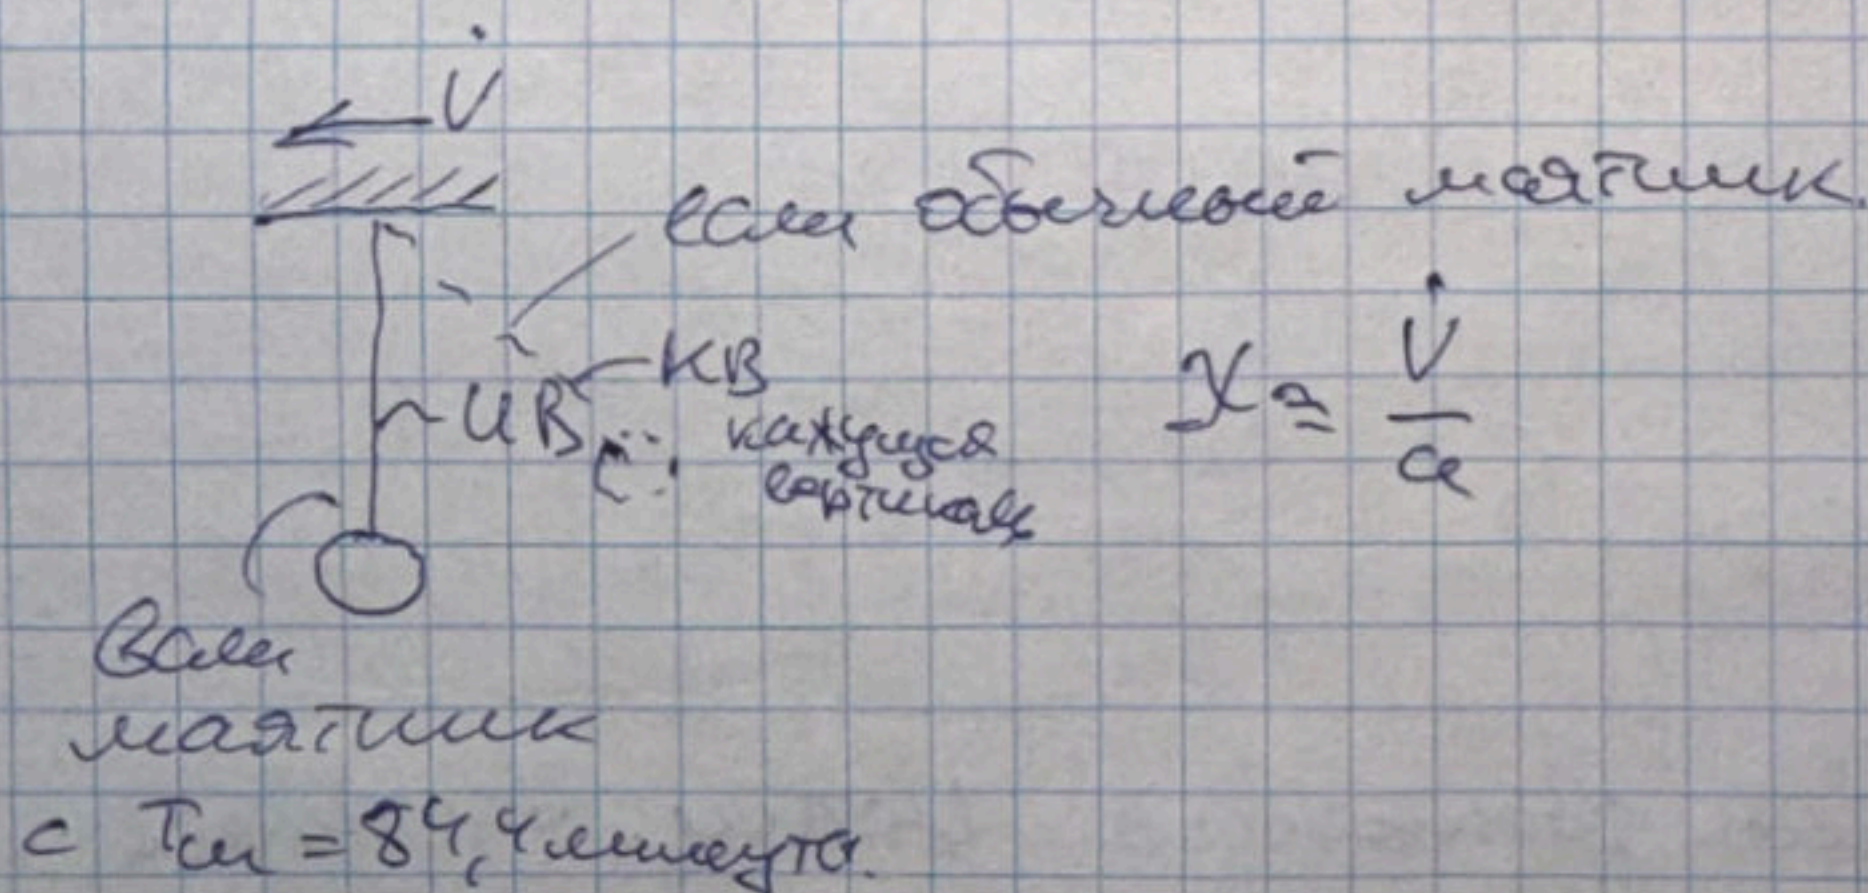 V̇
если обычный маятник.
ИВ
КВ
кажущуся
вертикаль
χ ≈ V̇ / a
Ваш
маятник
с Tм = 84,4 минута.